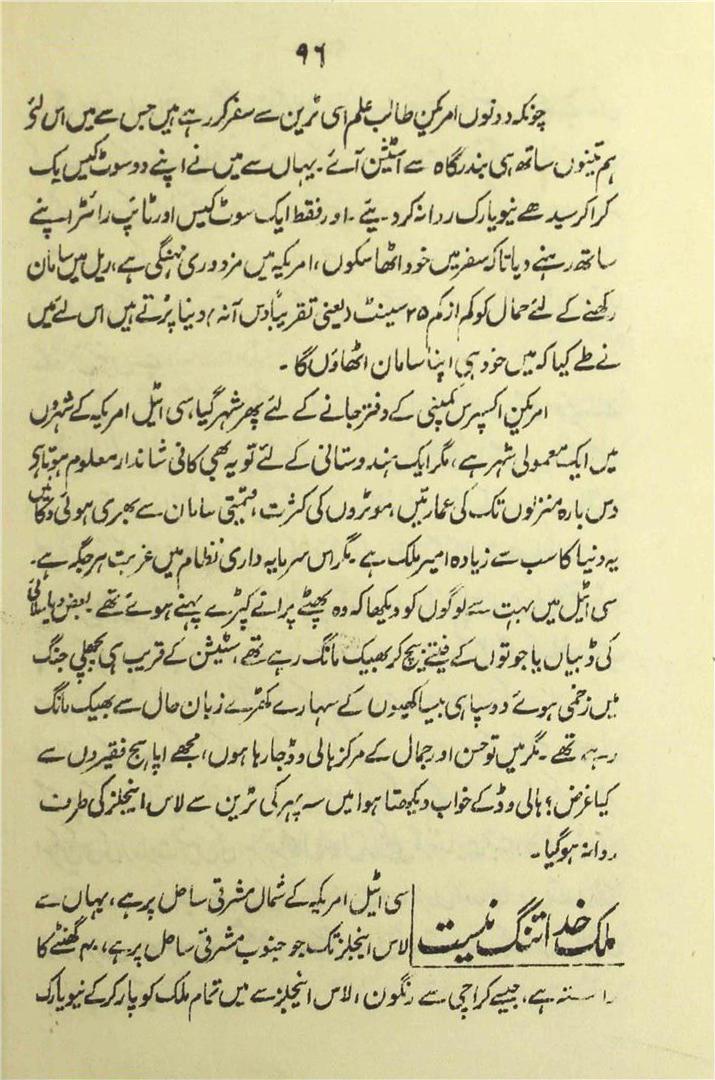 ۹۶
چونکہ دونوں امریکن طالب علم اسی ٹرین سے سفر کر رہے ہیں جس سے میں اس لئے
ہم تینوں ساتھ ہی بندرگاہ سے اسٹیشن آئے۔ یہاں سے میں نے اپنے دو سوٹ کیس بک
کرا کر سیدھے نیویارک روانہ کر دیئے۔ اور فقط ایک سوٹ کیس اور ٹائپ رائٹر اپنے
ساتھ رہنے دیا تاکہ سفر میں خود اٹھا سکوں، امریکہ میں مزدوری مہنگی ہے، ریل میں سامان
رکھنے کے لئے حمال کو کم از کم ۲۵ سینٹ (یعنی تقریباً دس آنہ) دینا پڑتے ہیں اس لئے میں
نے طے کیا کہ میں خود ہی اپنا سامان اٹھاؤں گا۔
امریکن اکسپرس کمپنی کے دفتر جانے کے لئے پھر شہر گیا، سی اٹیل امریکہ کے شہروں
میں ایک معمولی شہر ہے، مگر ایک ہندوستانی کے لئے تو یہ بھی کافی شاندار معلوم ہوتا ہے
دس بارہ منزلوں تک کی عمارتیں، موٹروں کی کثرت، قیمتی سامان سے بھری ہوئی دکانیں
یہ دنیا کا سب سے زیادہ امیر ملک ہے۔ مگر اس سرمایہ داری نظام میں غربت ہر جگہ ہے۔
سی اٹیل میں بہت سے لوگوں کو دیکھا کہ وہ پھٹے پرانے کپڑے پہنے ہوئے تھے۔ بعض دیا سلائی
کی ڈبیاں یا جوتوں کے فیتے بیچ کر بھیک مانگ رہے تھے، سٹیشن کے قریب ہی پچھلی جنگ
میں زخمی ہوئے دو سپاہی بیساکھیوں کے سہارے کھڑے زبان حال سے بھیک مانگ
رہے تھے۔ مگر میں تو حسن اور جمال کے مرکز ہالی وڈ جا رہا ہوں، مجھے اپاہج فقیروں سے
کیا غرض؟ ہالی وڈ کے خواب دیکھتا ہوا میں سہ پہر کی ٹرین سے لاس اینجلز کی طرف
روانہ ہوگیا۔
ملک خدا تنگ نیست
سی اٹیل امریکہ کے شمال مشرقی ساحل پر ہے، یہاں سے
لاس اینجلز تک جو جنوب مشرقی ساحل پر ہے، ۴۰ گھنٹے کا
راستہ ہے، جیسے کراچی سے رنگون، لاس اینجلز سے میں تمام ملک کو پار کر کے نیویارک